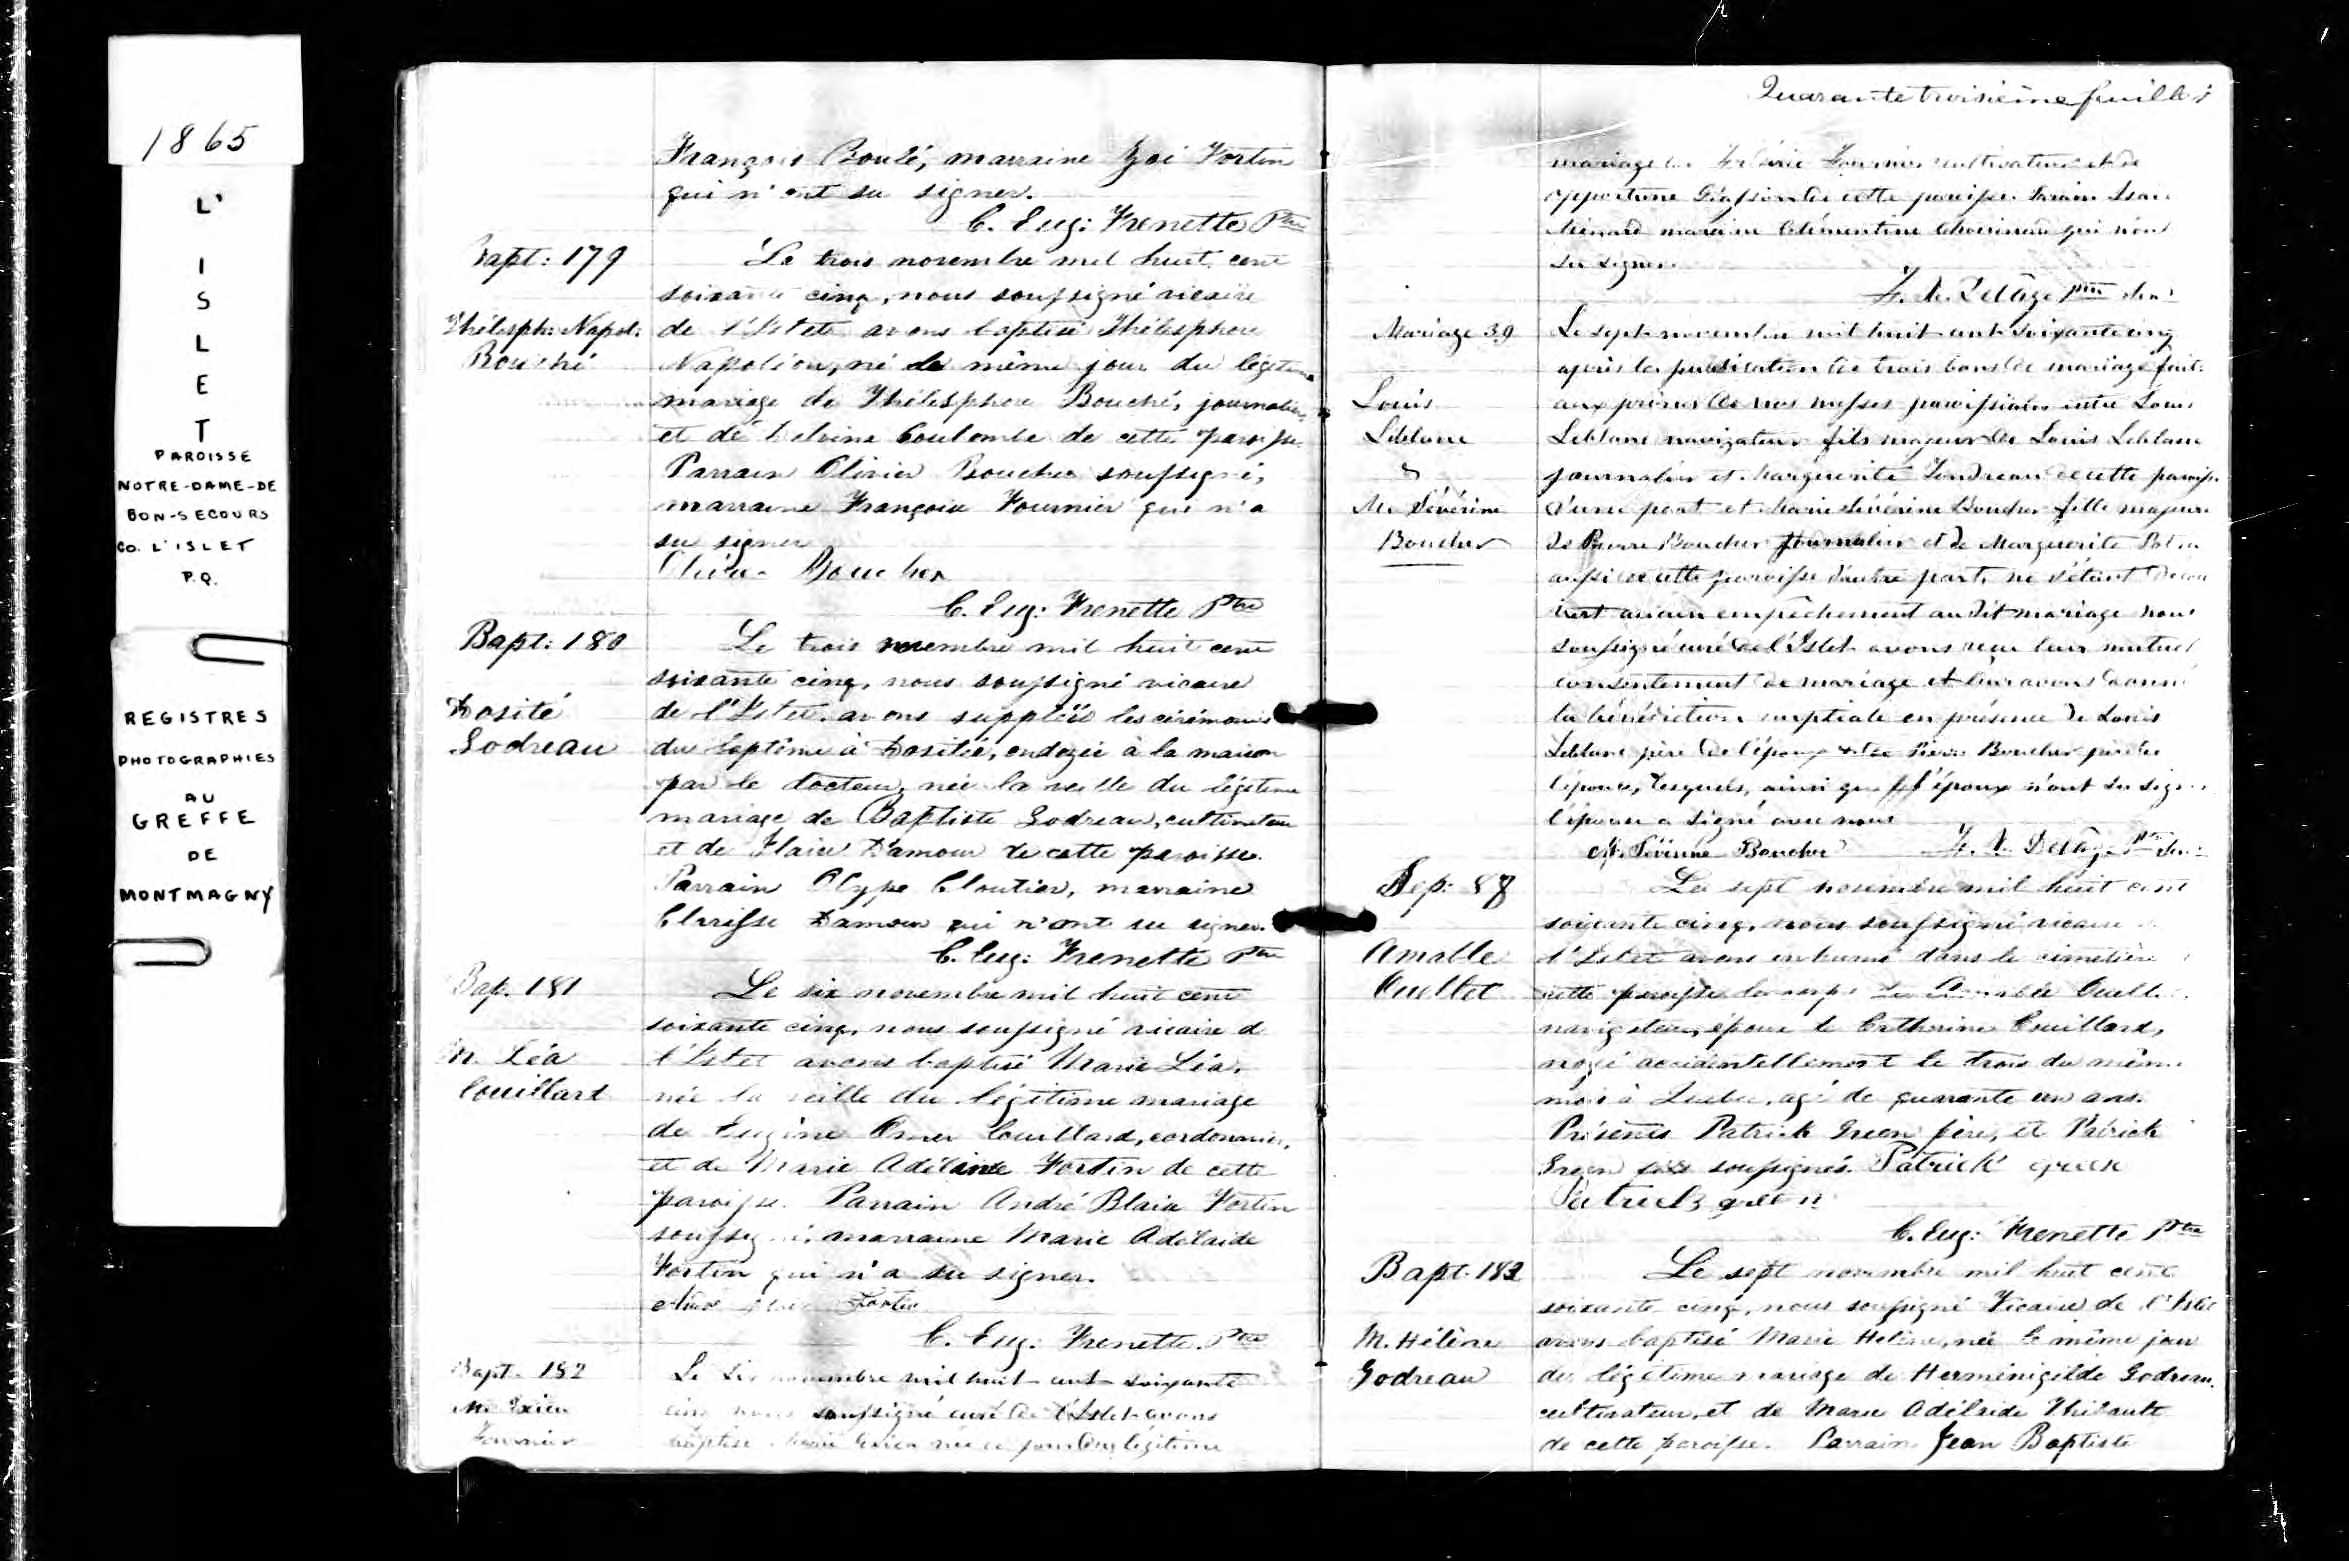 1865
L'
I
S
L
E
T
PAROISSE
NOTRE-DAME-DE
BON-SECOURS
CO. L'ISLET
P.Q.
REGISTRES
PHOTOGRAPHIES
AU
GREFFE
DE
MONTMAGNY
François Boulé, marraine Zoé Fortin
qui n'ont su signer.
C. Eug: Frenette Ptre
Bapt: 179
Thélesph: Napol:
Bouché
Le trois novembre mil huit cent
soixante cinq, nous soussigné vicaire
de l'Islet avons baptisé Thélesphore
Napoléon, né le même jour du légitime
mariage de Thélesphore Bouché, journalier
et de Delvina Coulombe de cette paroisse.
Parrain Olivier Boucher soussigné,
marraine Françoise Fournier qui n'a
su signer
Olivier Boucher
C. Eug: Frenette Ptre
Bapt: 180
Dosité
Godreau
Le trois novembre mil huit cent
soixante cinq, nous soussigné vicaire
de l'Islet avons suppléé les cérémonies
du baptême à Dositée, ondoyée à la maison
par le docteur, née la veille du légitime
mariage de Baptiste Godreau, cultivateur
et de Claire Damour de cette paroisse.
Parrain Olype Cloutier, marraine
Clarisse Damour qui n'ont su signer.
C. Eug: Frenette Ptre
Bap. 181
M. Léa
Couillard
Le six novembre mil huit cent
soixante cinq, nous soussigné vicaire de
l'Islet avons baptisé Marie Léa,
née la veille du légitime mariage
de Eugène Omer Couillard, cordonnier,
et de Marie Adélaïde Fortin de cette
paroisse. Parrain André Blaise Fortin
soussigné, marraine Marie Adélaïde
Fortin qui n'a su signer.
Fortin
C. Eug: Frenette Ptre
Bapt. 182
M.
Fournier
Le six novembre mil huit cent soixante
cinq nous soussigné curé de l'Islet avons
baptisé Marie née ce jour du légitime
Quarante troisième feuillet
mariage Fournier cultivateur et de
opportune de cette paroisse Parrain
Ménard marraine Clémentine qui n'ont
su signer.
F. X. Delâge Ptre
Mariage 39
Louis
Leblanc
&
M. Sévérine
Boucher
Le sept novembre mil huit cent soixante cinq
après la publication de trois bans de mariage faite
aux prônes de nos messes paroissiales entre Louis
Leblanc navigateur fils majeur de Louis Leblanc
journalier et Marguerite Gaudreau de cette paroisse
d'une part et Marie Sévérine Boucher fille majeure
de Pierre Boucher journalier et de Marguerite
aussi de cette paroisse d'autre part, ne s'étant décou
vert aucun empêchement au dit mariage nous
soussigné curé de l'Islet avons reçu leur mutuel
consentement de mariage et leur avons donné
la bénédiction nuptiale en présence de Louis
Leblanc père de l'époux et de Pierre Boucher père de
l'épouse, lesquels, ainsi que l'époux n'ont su signer
l'épouse a signé avec nous
M. Sévérine Boucher F. X. Delâge Ptre
Sep: 87
Amable
Ouellet
Le sept novembre mil huit cent
soixante cinq, nous soussigné vicaire
l'Islet avons inhumé dans le cimetière
cette paroisse le corps de Amable Ouellet
navigateur, époux de Catherine Couillard,
noyé accidentellement le trois du même
mois à Québec, agé de quarante un ans.
Présents Patrick Green père, et Patrick
Green fils soussignés. Patrick green
Patrick green
C. Eug: Frenette Ptre
Bapt. 183
M. Hélène
Godreau
Le sept novembre mil huit cent
soixante cinq, nous soussigné Vicaire de l'Islet
avons baptisé Marie Hélène, née le même jour
du légitime mariage de Herménigilde Godreau,
cultivateur, et de Marie Adélaïde Thibault
de cette paroisse. Parrain Jean Baptiste